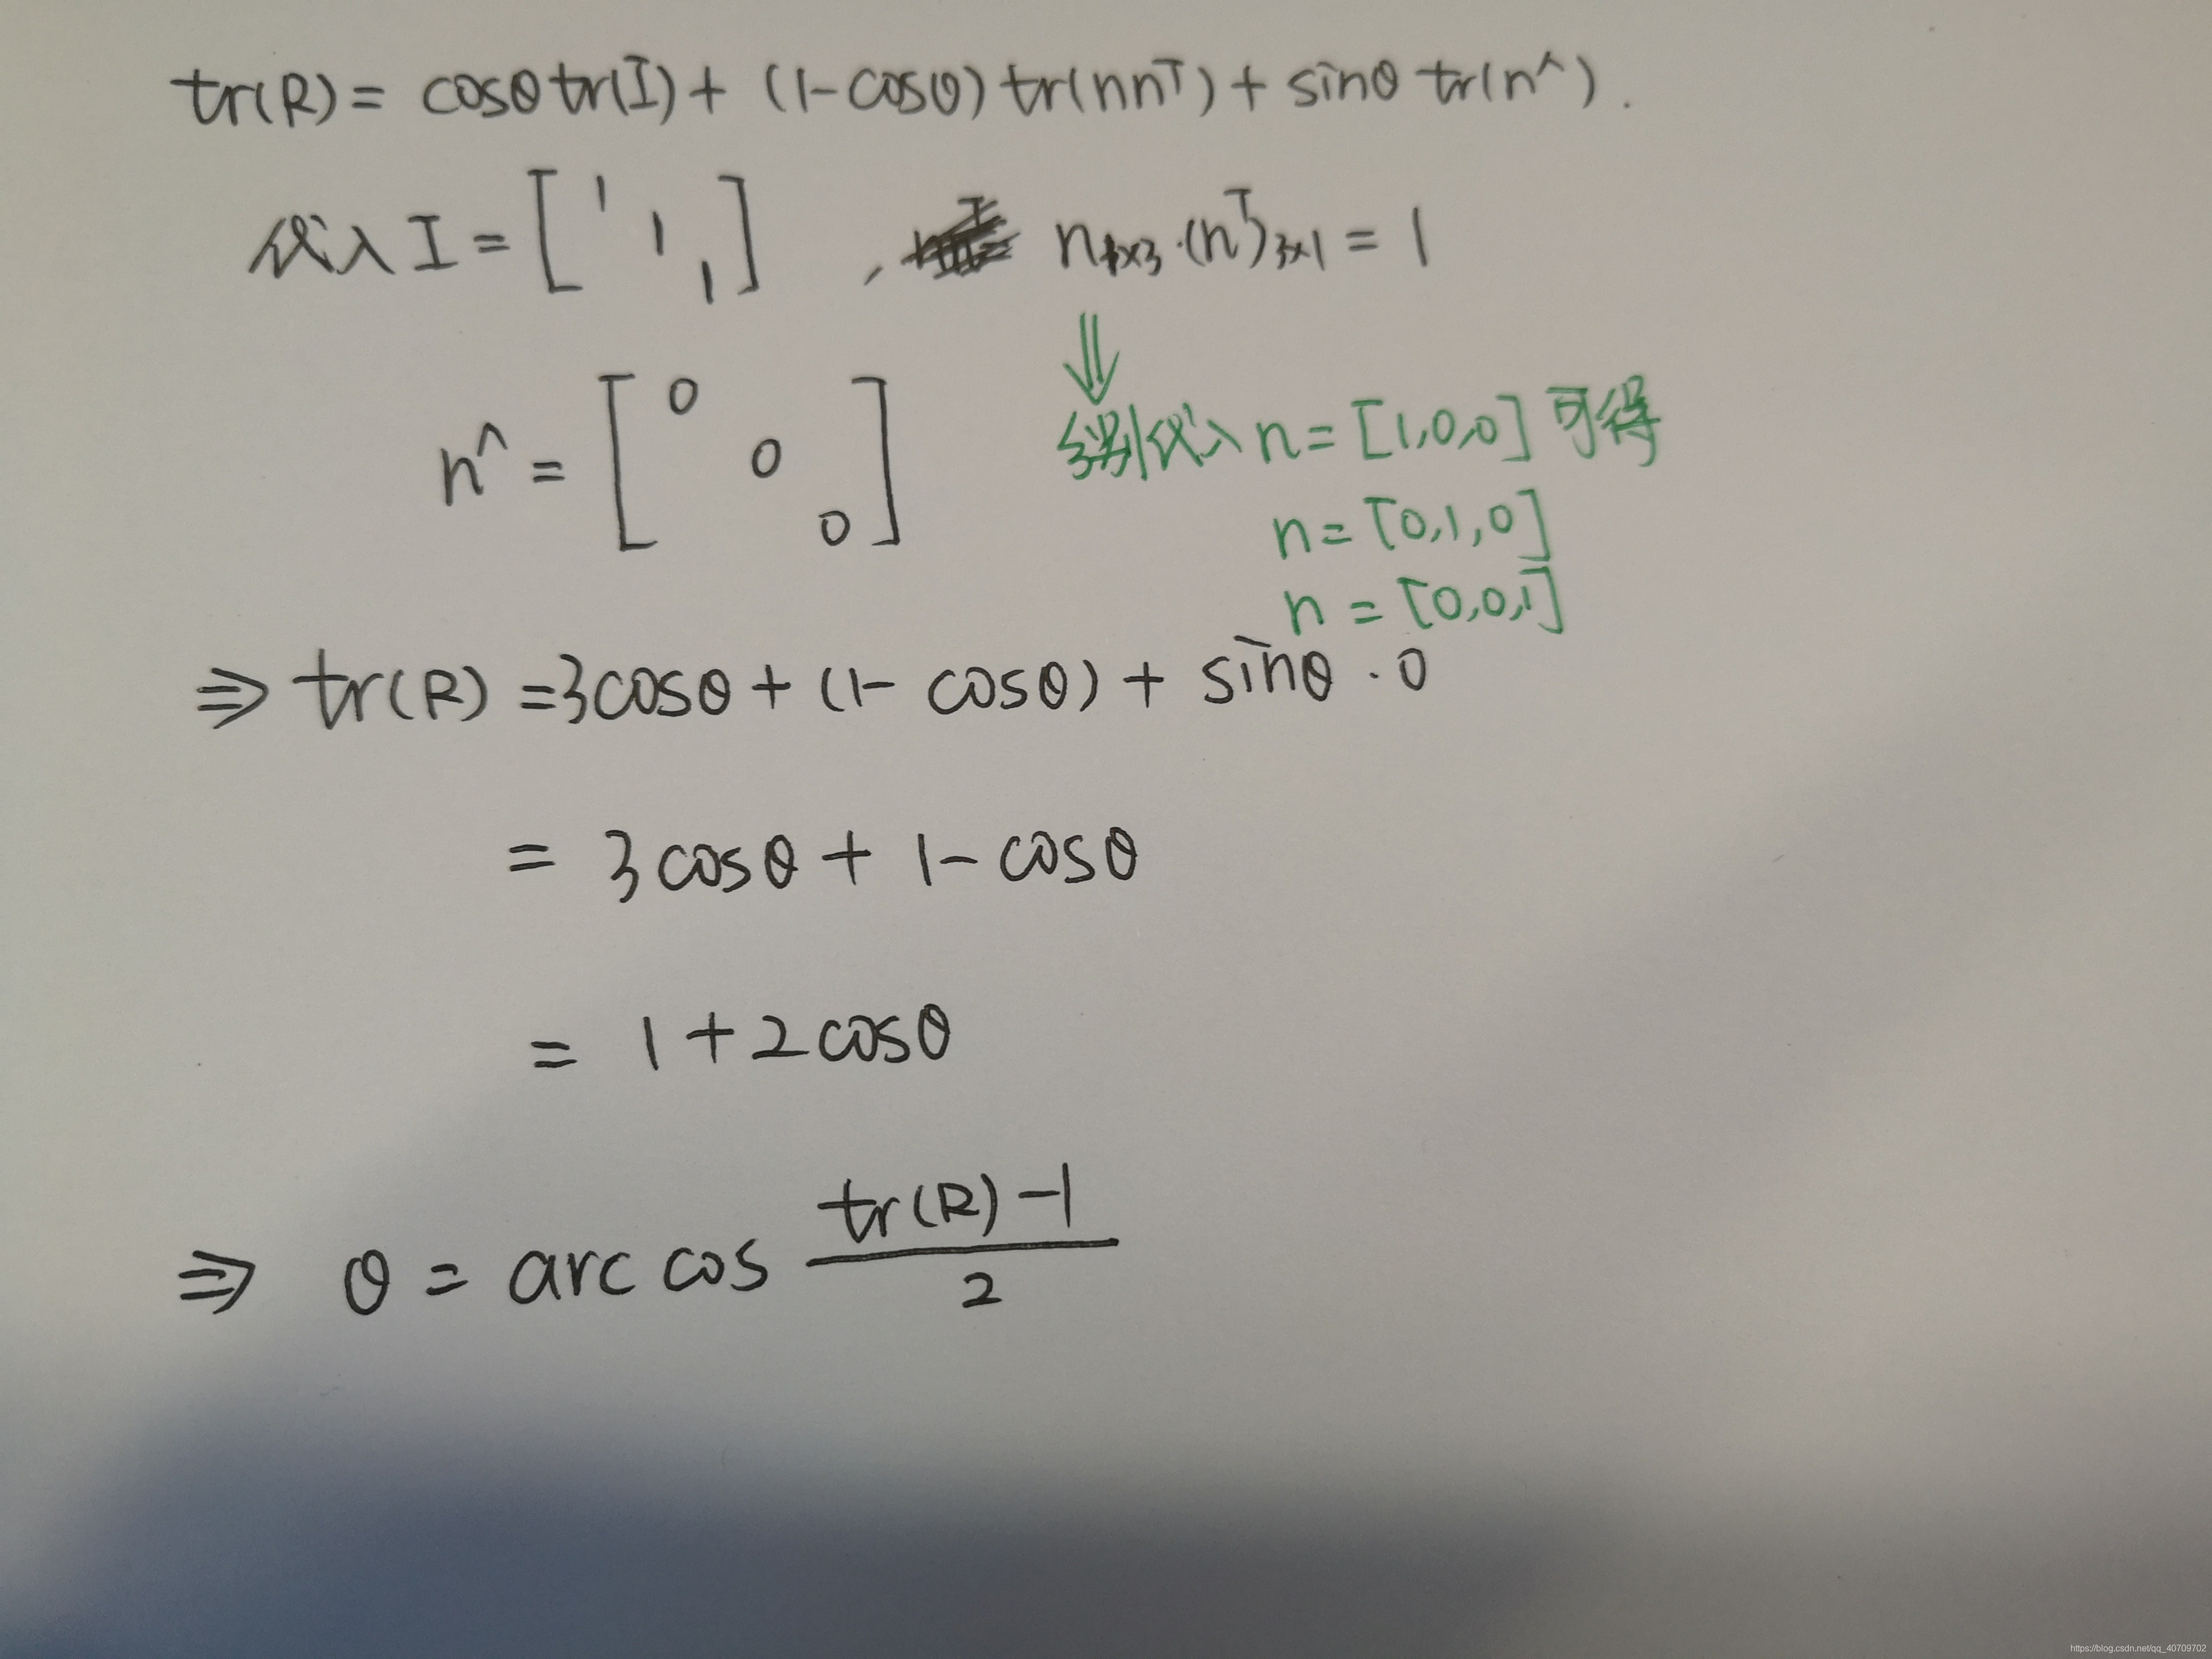 tr(R) = cosθ tr(I) + (1-cosθ) tr(nnᵀ) + sinθ tr(n^).
代入 I = [ 1 1 1 ] , n₁ₓ₃·(nᵀ)₃ₓ₁ = 1
⇓
n^ = [ 0 0 0 ]
分别代入 n = [1,0,0] 可得
n = [0,1,0]
n = [0,0,1]
⇒ tr(R) = 3cosθ + (1- cosθ) + sinθ · 0
= 3cosθ + 1- cosθ
= 1 + 2cosθ
⇒ θ = arc cos (tr(R) -1) / 2
https://blog.csdn.net/qq_40709702